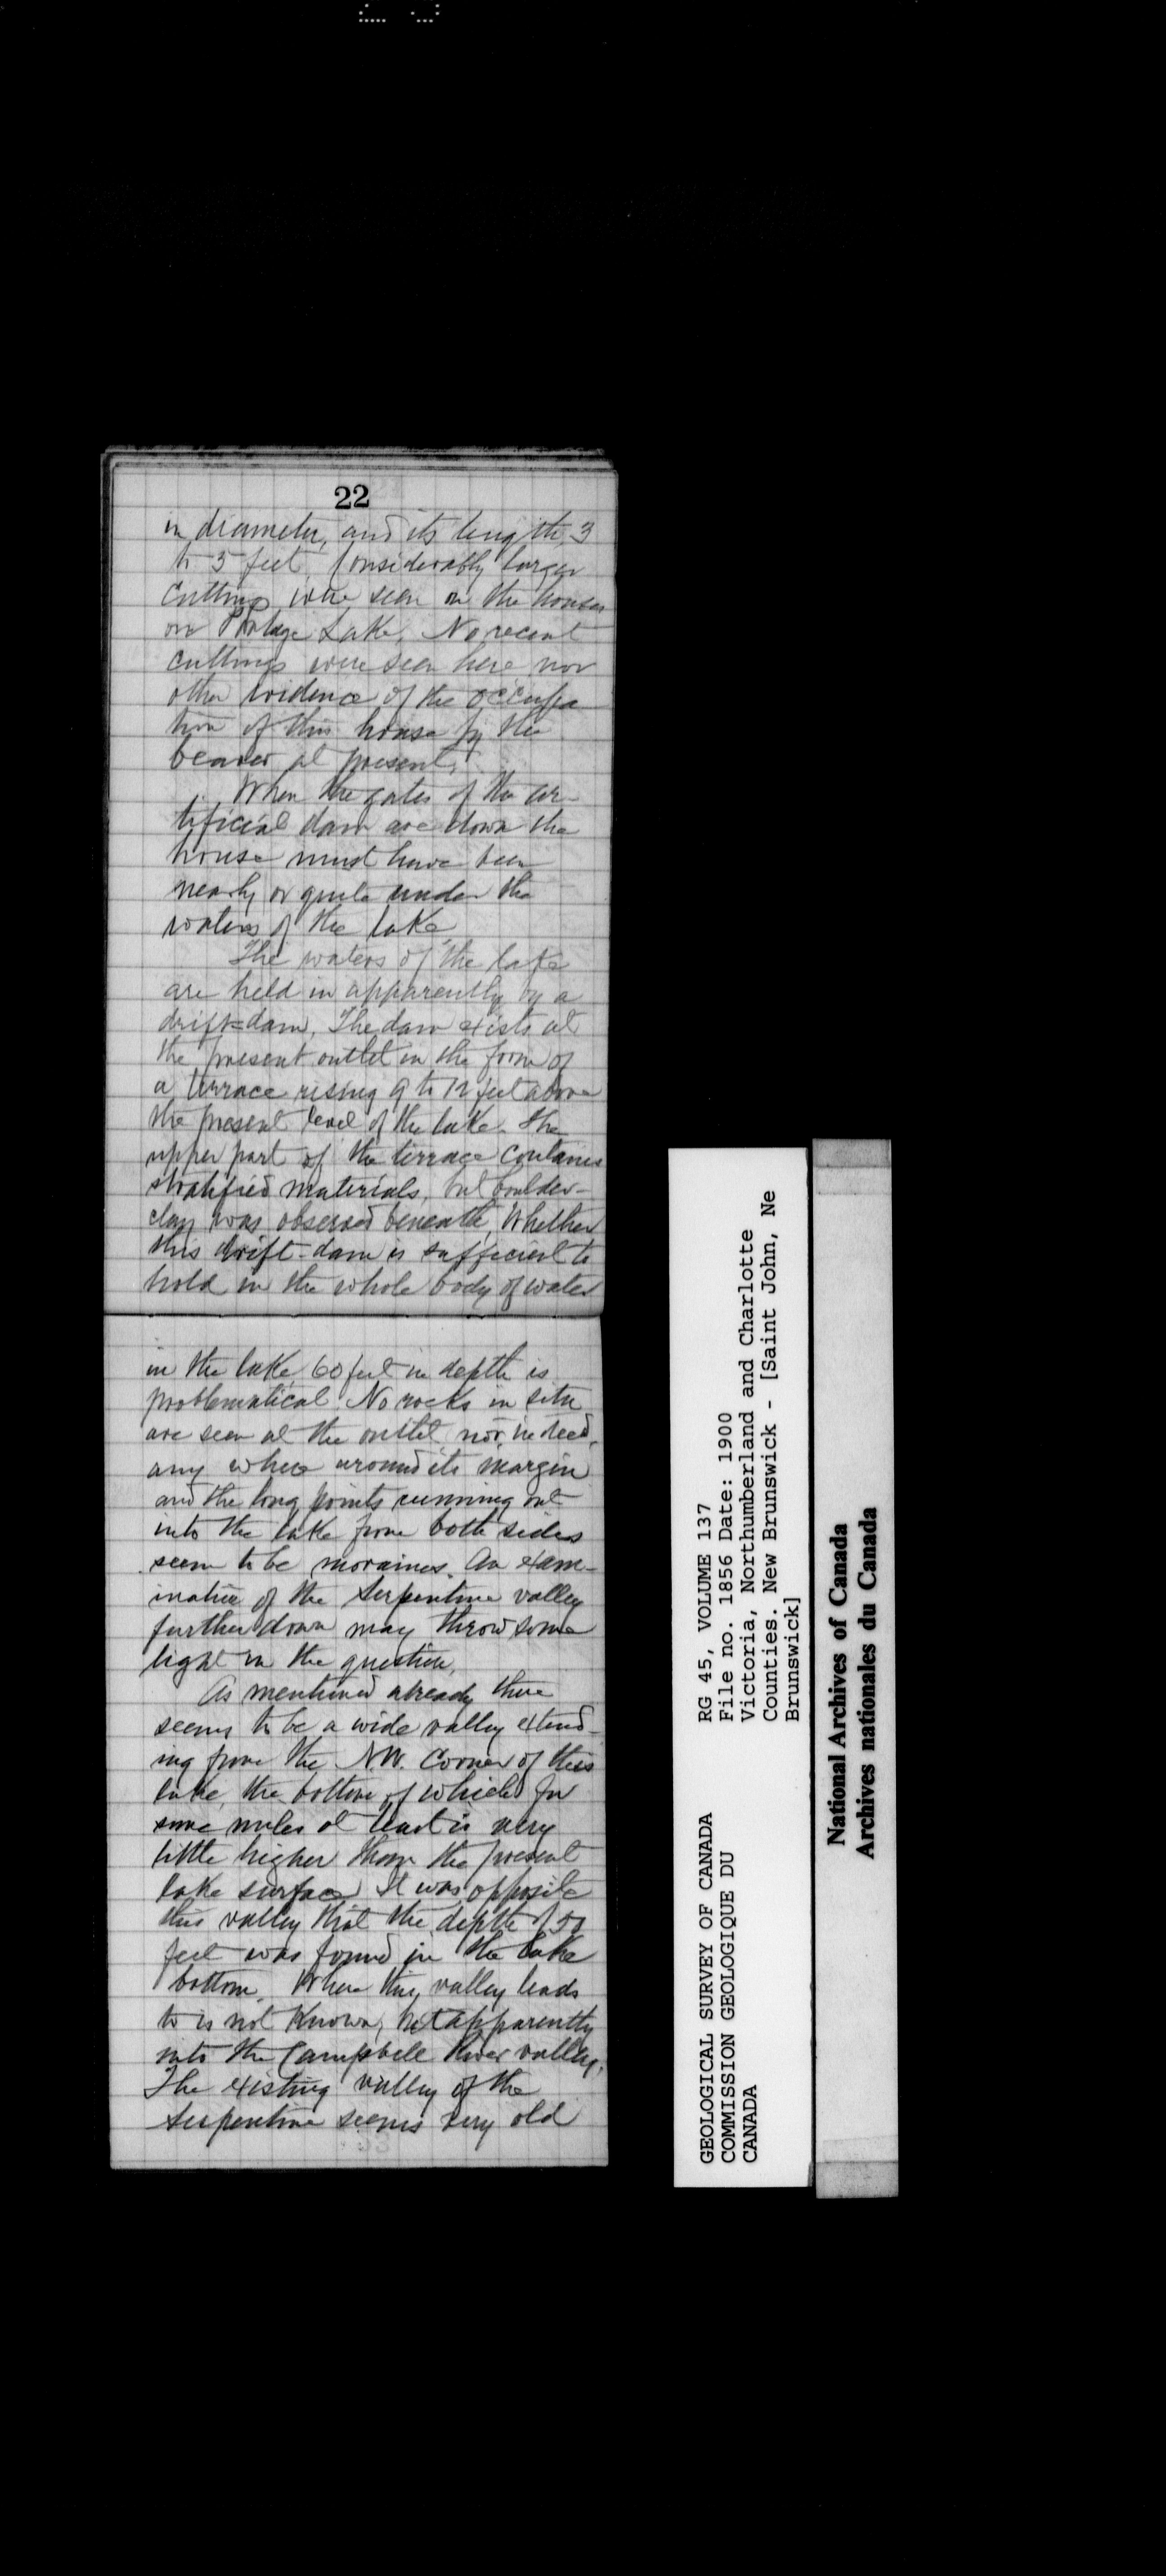 22
in diameter, and its length, 3
to 5 feet. Considerably larger
cuttings were seen on the houses
on Portage Lake. No recent
cuttings were seen here nor
other evidence of the occupa
tion of this house by the
beaver at present.
When the gates of the ar-
tificial dam are down the
house must have been
nearly or quite under the
waters of the lake
The waters of the lake
are held in apparently by a
drift-dam. The dam exists at
the present outlet in the form of
a terrace rising 9 to 12 feet above
the present level of the lake. The
upper part of the terrace contains
stratified materials, but boulder-
clay was observed beneath. Whether
this drift-dam is sufficient to
hold in the whole body of water
in the lake 60 feet in depth is
problematical. No rocks in situ
are seen at the outlet nor, indeed,
any where around its margin
and the long points running out
into the lake from both sides
seem to be moraines. An exam-
ination of the Serpentine valley
further down may throw some
light on the question.
As mentioned already there
seems to be a wide valley extend-
ing from the N.W. Corner of this
lake, the bottom of which for
some miles at least is very
little higher than the present
lake surface. It was opposite
this valley that the depth of 50
feet was found in the lake
bottom. Where this valley leads
to is not known, but apparently
into the Campbell River valley.
The existing valley of the
Serpentine seems very old
GEOLOGICAL SURVEY OF CANADA
COMMISSION GEOLOGIQUE DU
CANADA
RG 45, VOLUME 137
File no. 1856 Date: 1900
Victoria, Northumberland and Charlotte
Counties. New Brunswick - [Saint John, Ne
Brunswick]
National Archives of Canada
Archives nationales du Canada